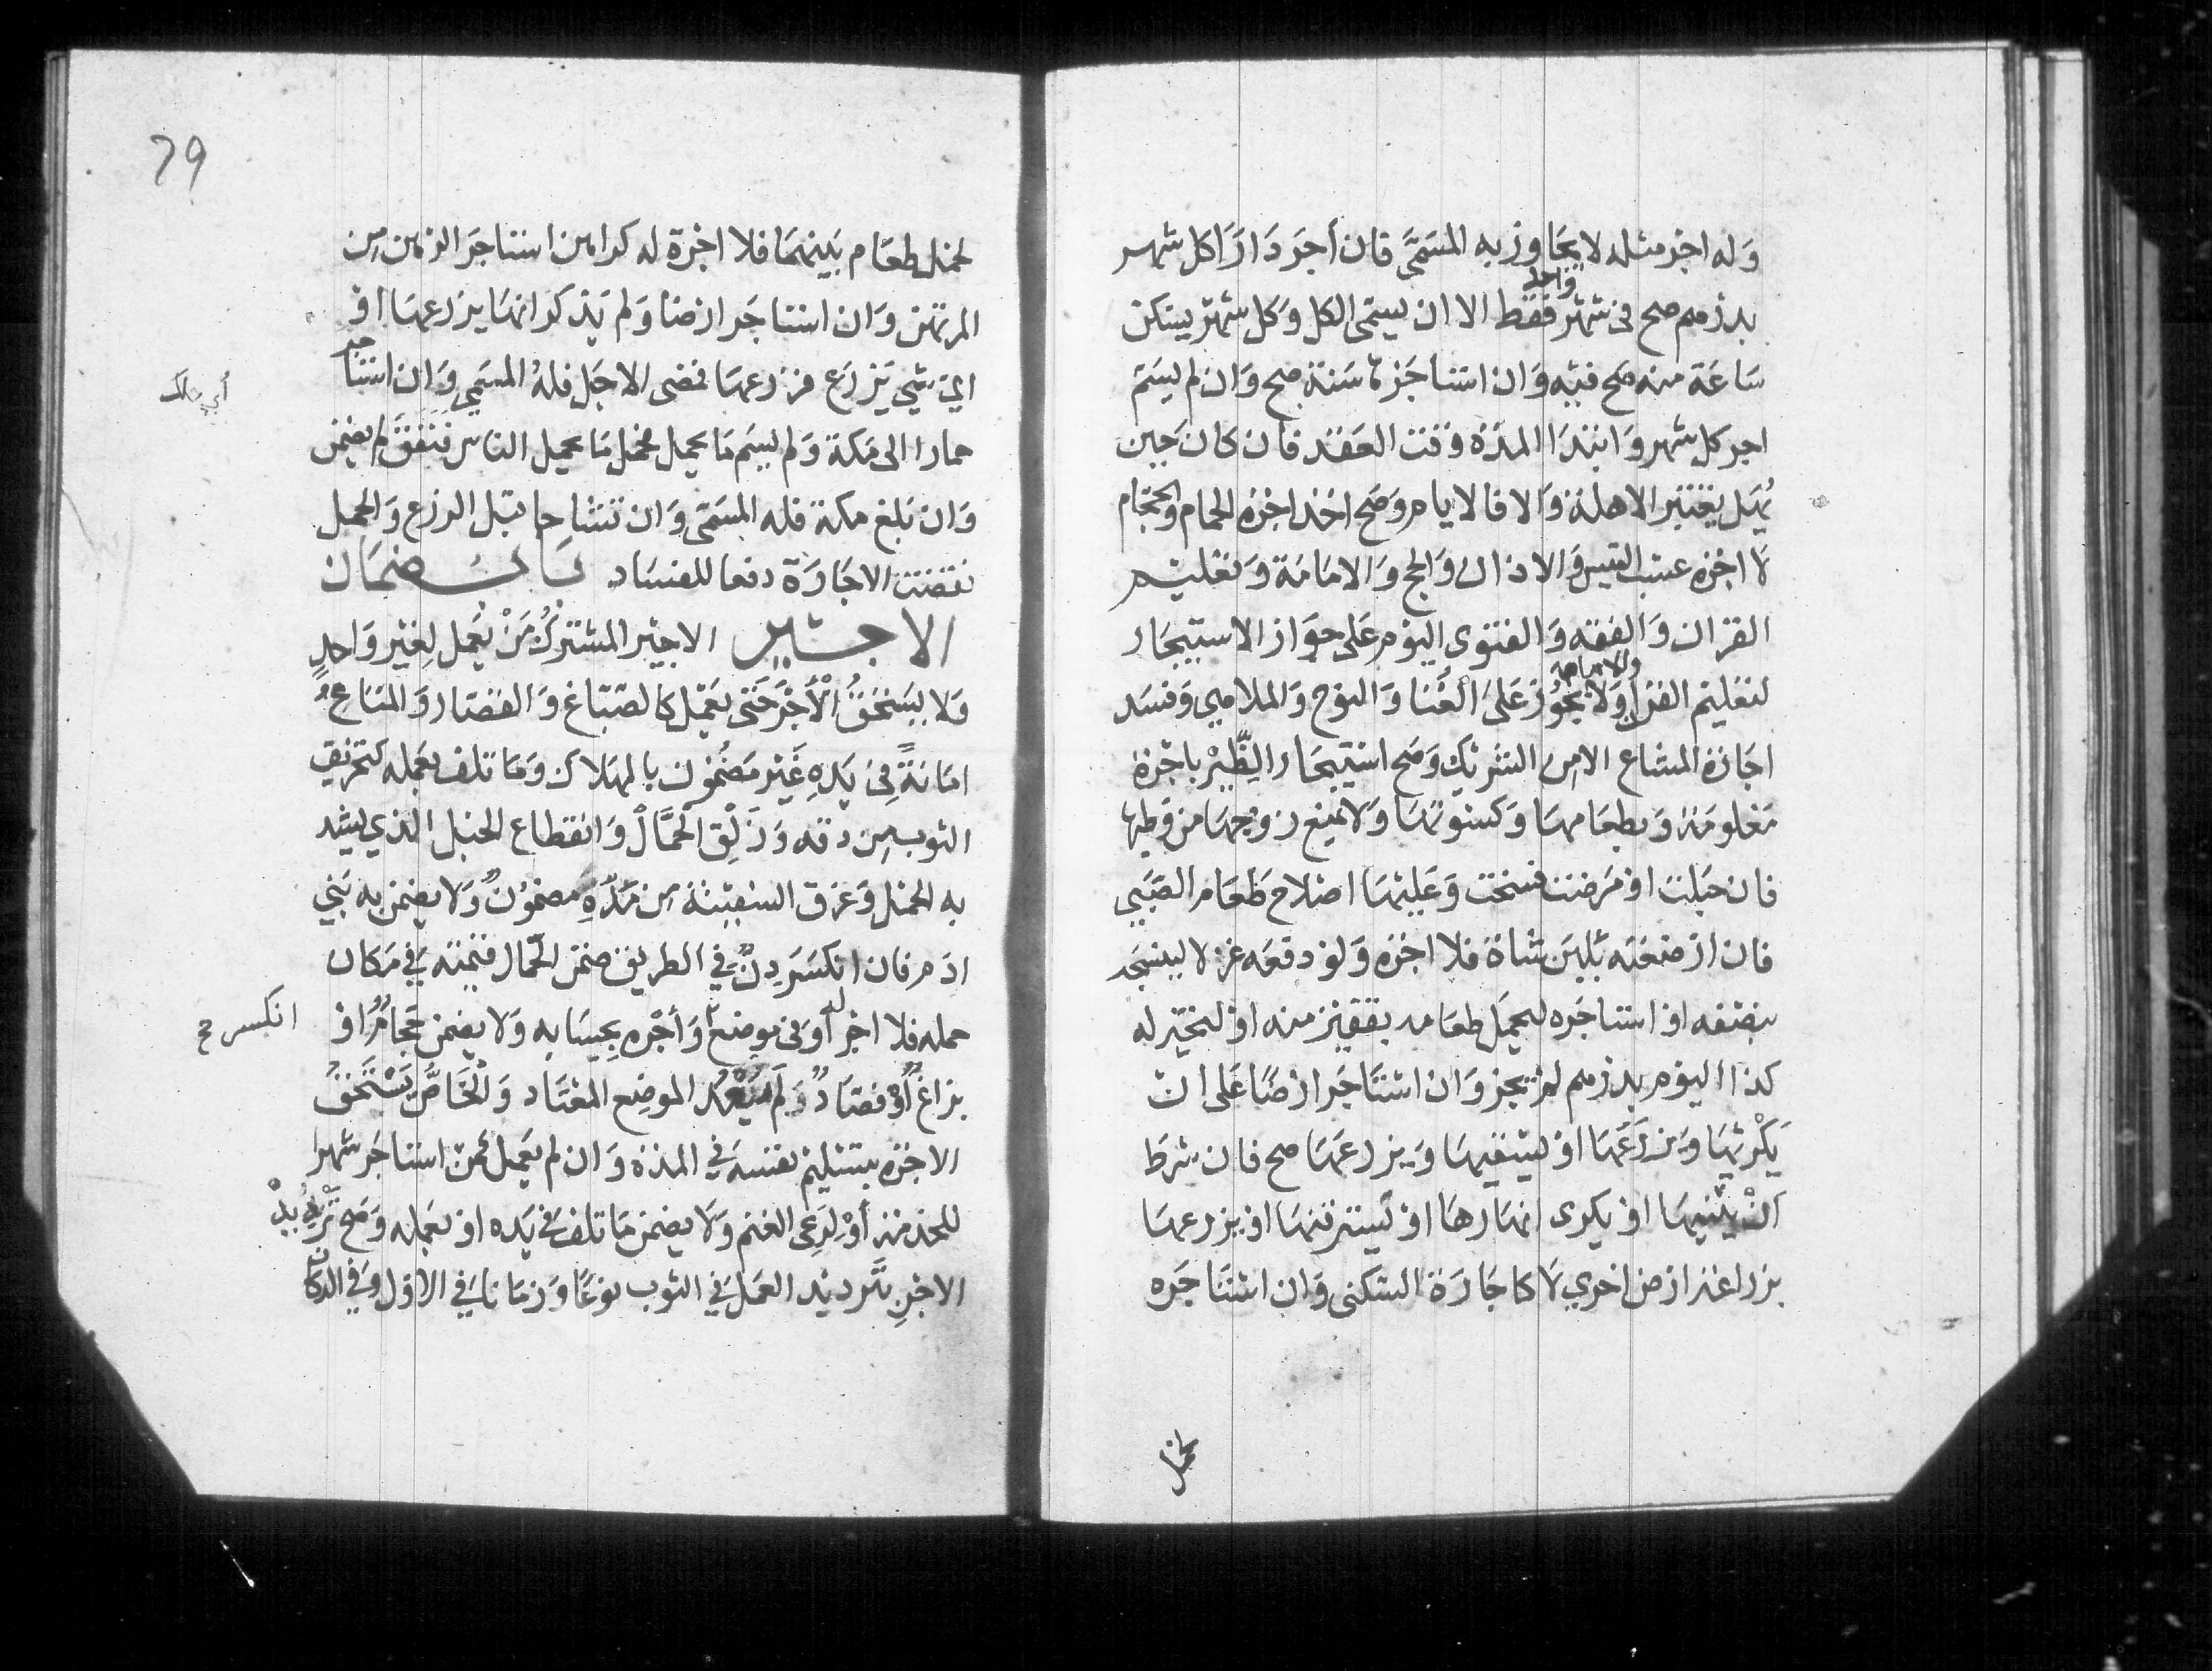 وله اجر مثله لا يجاوز به المسمى فان أجر دارا كل شهر
واحد
بدرهم صح في شهر فقط الا ان يسمى الكل وكل شهر يسكن
ساعة منه صح فيه وان استاجرها سنة صح وان لم يسم
اجر كل شهر وابتدا المدة وقت العقد فان كان حين
يهل يعتبر الاهلة والا فالايام وصح اخذ اجرة الحمام والحجام
لا اجرة عسب التيس والاذان والحج والامامة وتعليم
القران والفقه والفتوى اليوم على جواز الاستيجار
والامامة
لتعليم القران ولا يجوز على الغنا والنوح والملاهي وفسد
اجارة المشاع الا من الشريك وصح استيجار الظئر باجرة
معلومة وبطعامها وكسوتها ولا يمنع زوجها من وطيها
فان حبلت او مرضت فسخت وعليها اصلاح طعام الصبي
فان ارضعته بلبن شاة فلا اجرة ولو دفعه غزلا لينسجه
بنصفه او استاجره ليحمل طعامه بقفيز منه او ليخبز له
كذا اليوم بدرهم لم يجز وان استاجر ارضا على ان
يكربها ويزرعها او يسقيها ويزرعها صح فان شرط
ان يثنيها او يكرى انهارها او يسرقنها او يزرعها
بزراعة ارض اخري لا كاجارة السكنى وان استاجره
لحمل
79
لحمل طعام بينهما فلا اجرة له كراهن استاجر الرهن من
المرتهن وان استاجر ارضا ولم يذكر انها يزرعها او
اي شي يزرع فزرعها فمضى الاجل فله المسمى وان استاجر
أي هلك
حمارا الى مكة ولم يسم ما يحمل فحمل ما يحمل الناس فنفق لم يضمن
وان بلغ مكة فله المسمى وان تشاحا قبل الزرع والحمل
نقضت الاجارة دفعا للفساد باب ضمان
الاجير الاجير المشترك من يعمل لغير واحد
ولا يستحق الأجر حتى يعمل كالصباغ والقصار والمتاع
امانة في يده غير مضمون بالهلاك وما تلف بعمله كتخريق
الثوب من دقه وزلق الحمال وانقطاع الحبل الذي يشد
به الحمل وغرق السفينة من مده مضمون ولا يضمن به بني
ادم فان انكسر دن في الطريق ضمن الحمال قيمته في مكان
حمله فلا اجر له أو في موضع وأجره بحسابه ولا يضمن حجام او
انكسر صح
بزاغ أو فصاد ولم يتعد الموضع المعتاد والخاص يستحق
الاجرة بتسليم نفسه في المدة وان لم يعمل كمن استاجر شهرا
للخدمة أو لرعى الغنم ولا يضمن ما تلف في يده او بعمله وصح ترديد
الاجر بترديد العمل في الثوب نوعا وزمانا في الاول وفي الدكان